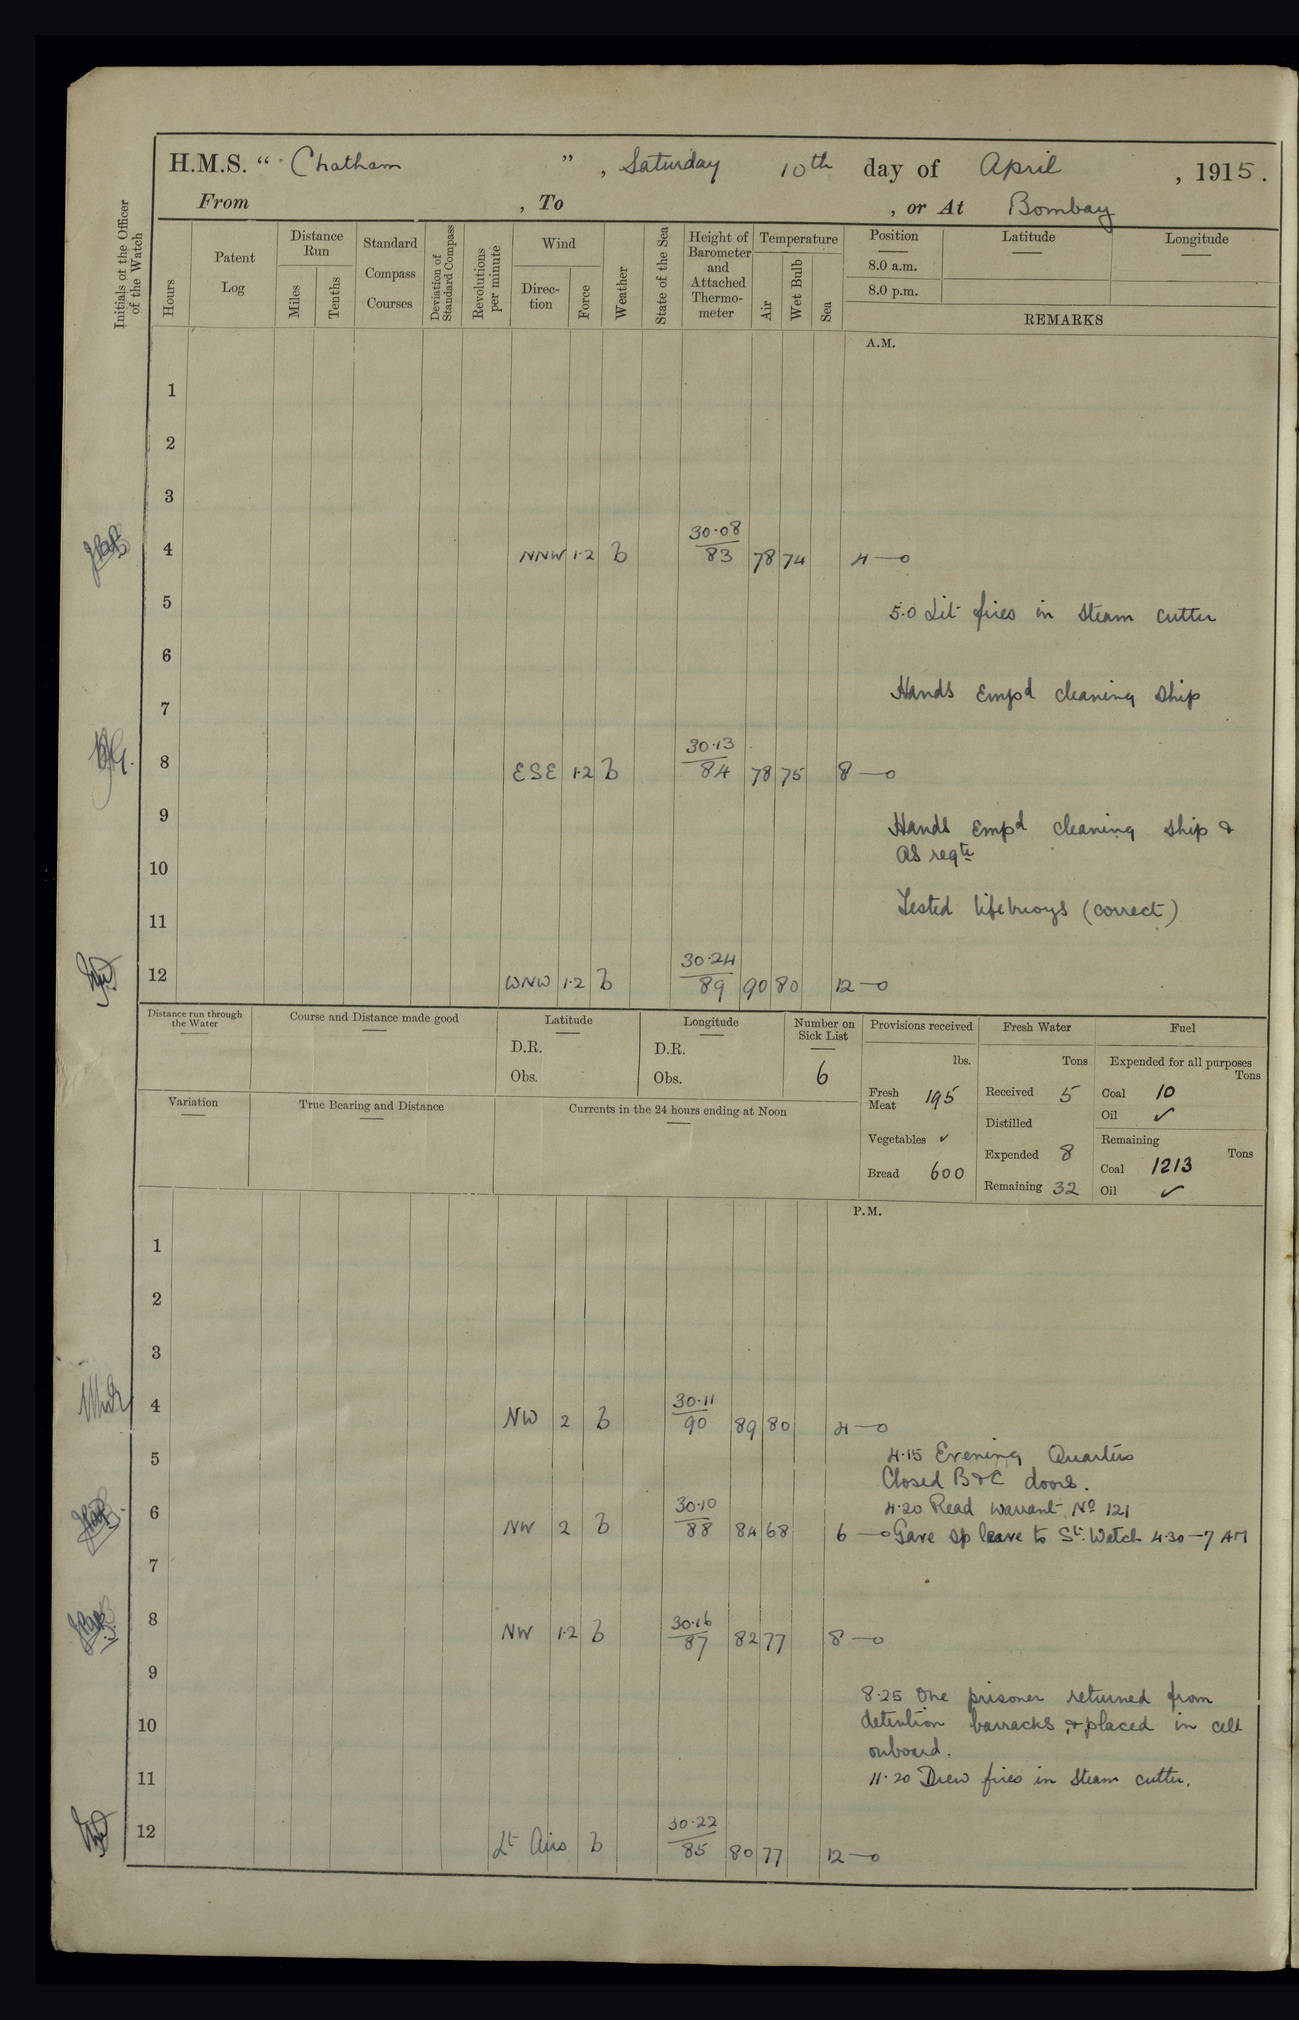 H.M.S. " Chatham ", Saturday 10th day of April , 1915.
From , To , or At Bombay
Initials of the Officer of the Watch
Hours
Patent Log
Distance Run
Miles
Tenths
Standard Compass Courses
Deviation of Standard Compass
Revolutions per minute
Wind
Direc-tion
Force
Weather
State of the Sea
Height of Barometer and Attached Thermo-meter
Temperature
Air
Wet Bulb
Sea
Position
8.0 a.m.
8.0 p.m.
Latitude
Longitude
REMARKS
A.M.
1
2
3
4 NNW 1·2 b 30·08/83 78 74 4—0
5
5.0 Lit fires in steam cutter
6
Hands Empd cleaning ship
7
8 ESE 1·2 b 30·13/84 78 75 8—0
9
Hands empd cleaning ship &
as reqte
10
Tested lifebuoys (correct)
11
12 WNW 1·2 b 30·24/89 90 80 12—0
Distance run through the Water
Course and Distance made good
Latitude
D.R.
Obs.
Longitude
D.R.
Obs.
Number on Sick List
6
Provisions received
lbs.
Fresh Meat 195
Vegetables ✓
Bread 600
Fresh Water
Tons
Received 5
Distilled
Expended 8
Remaining 32
Fuel
Expended for all purposes
Tons
Coal 10
Oil ✓
Remaining
Tons
Coal 1213
Oil ✓
Variation
True Bearing and Distance
Currents in the 24 hours ending at Noon
P.M.
1
2
3
4 NW 2 b 30·11/90 89 80 4—0
5
4·15 Evening Quarters
Closed B&C doors.
4·20 Read Warrant No 121
6 NW 2 b 30·10/88 84 68 6—0 Gave sp leave to St. Watch 4·30—7 AM
7
8 NW 1·2 b 30·16/87 82 77 8—0
9
8·25 One prisoner returned from
detention barracks & placed in cell
onboard.
10
11
11·20 Drew fires in steam cutter.
12 Lt Airs b 30·22/85 80 77 12—0